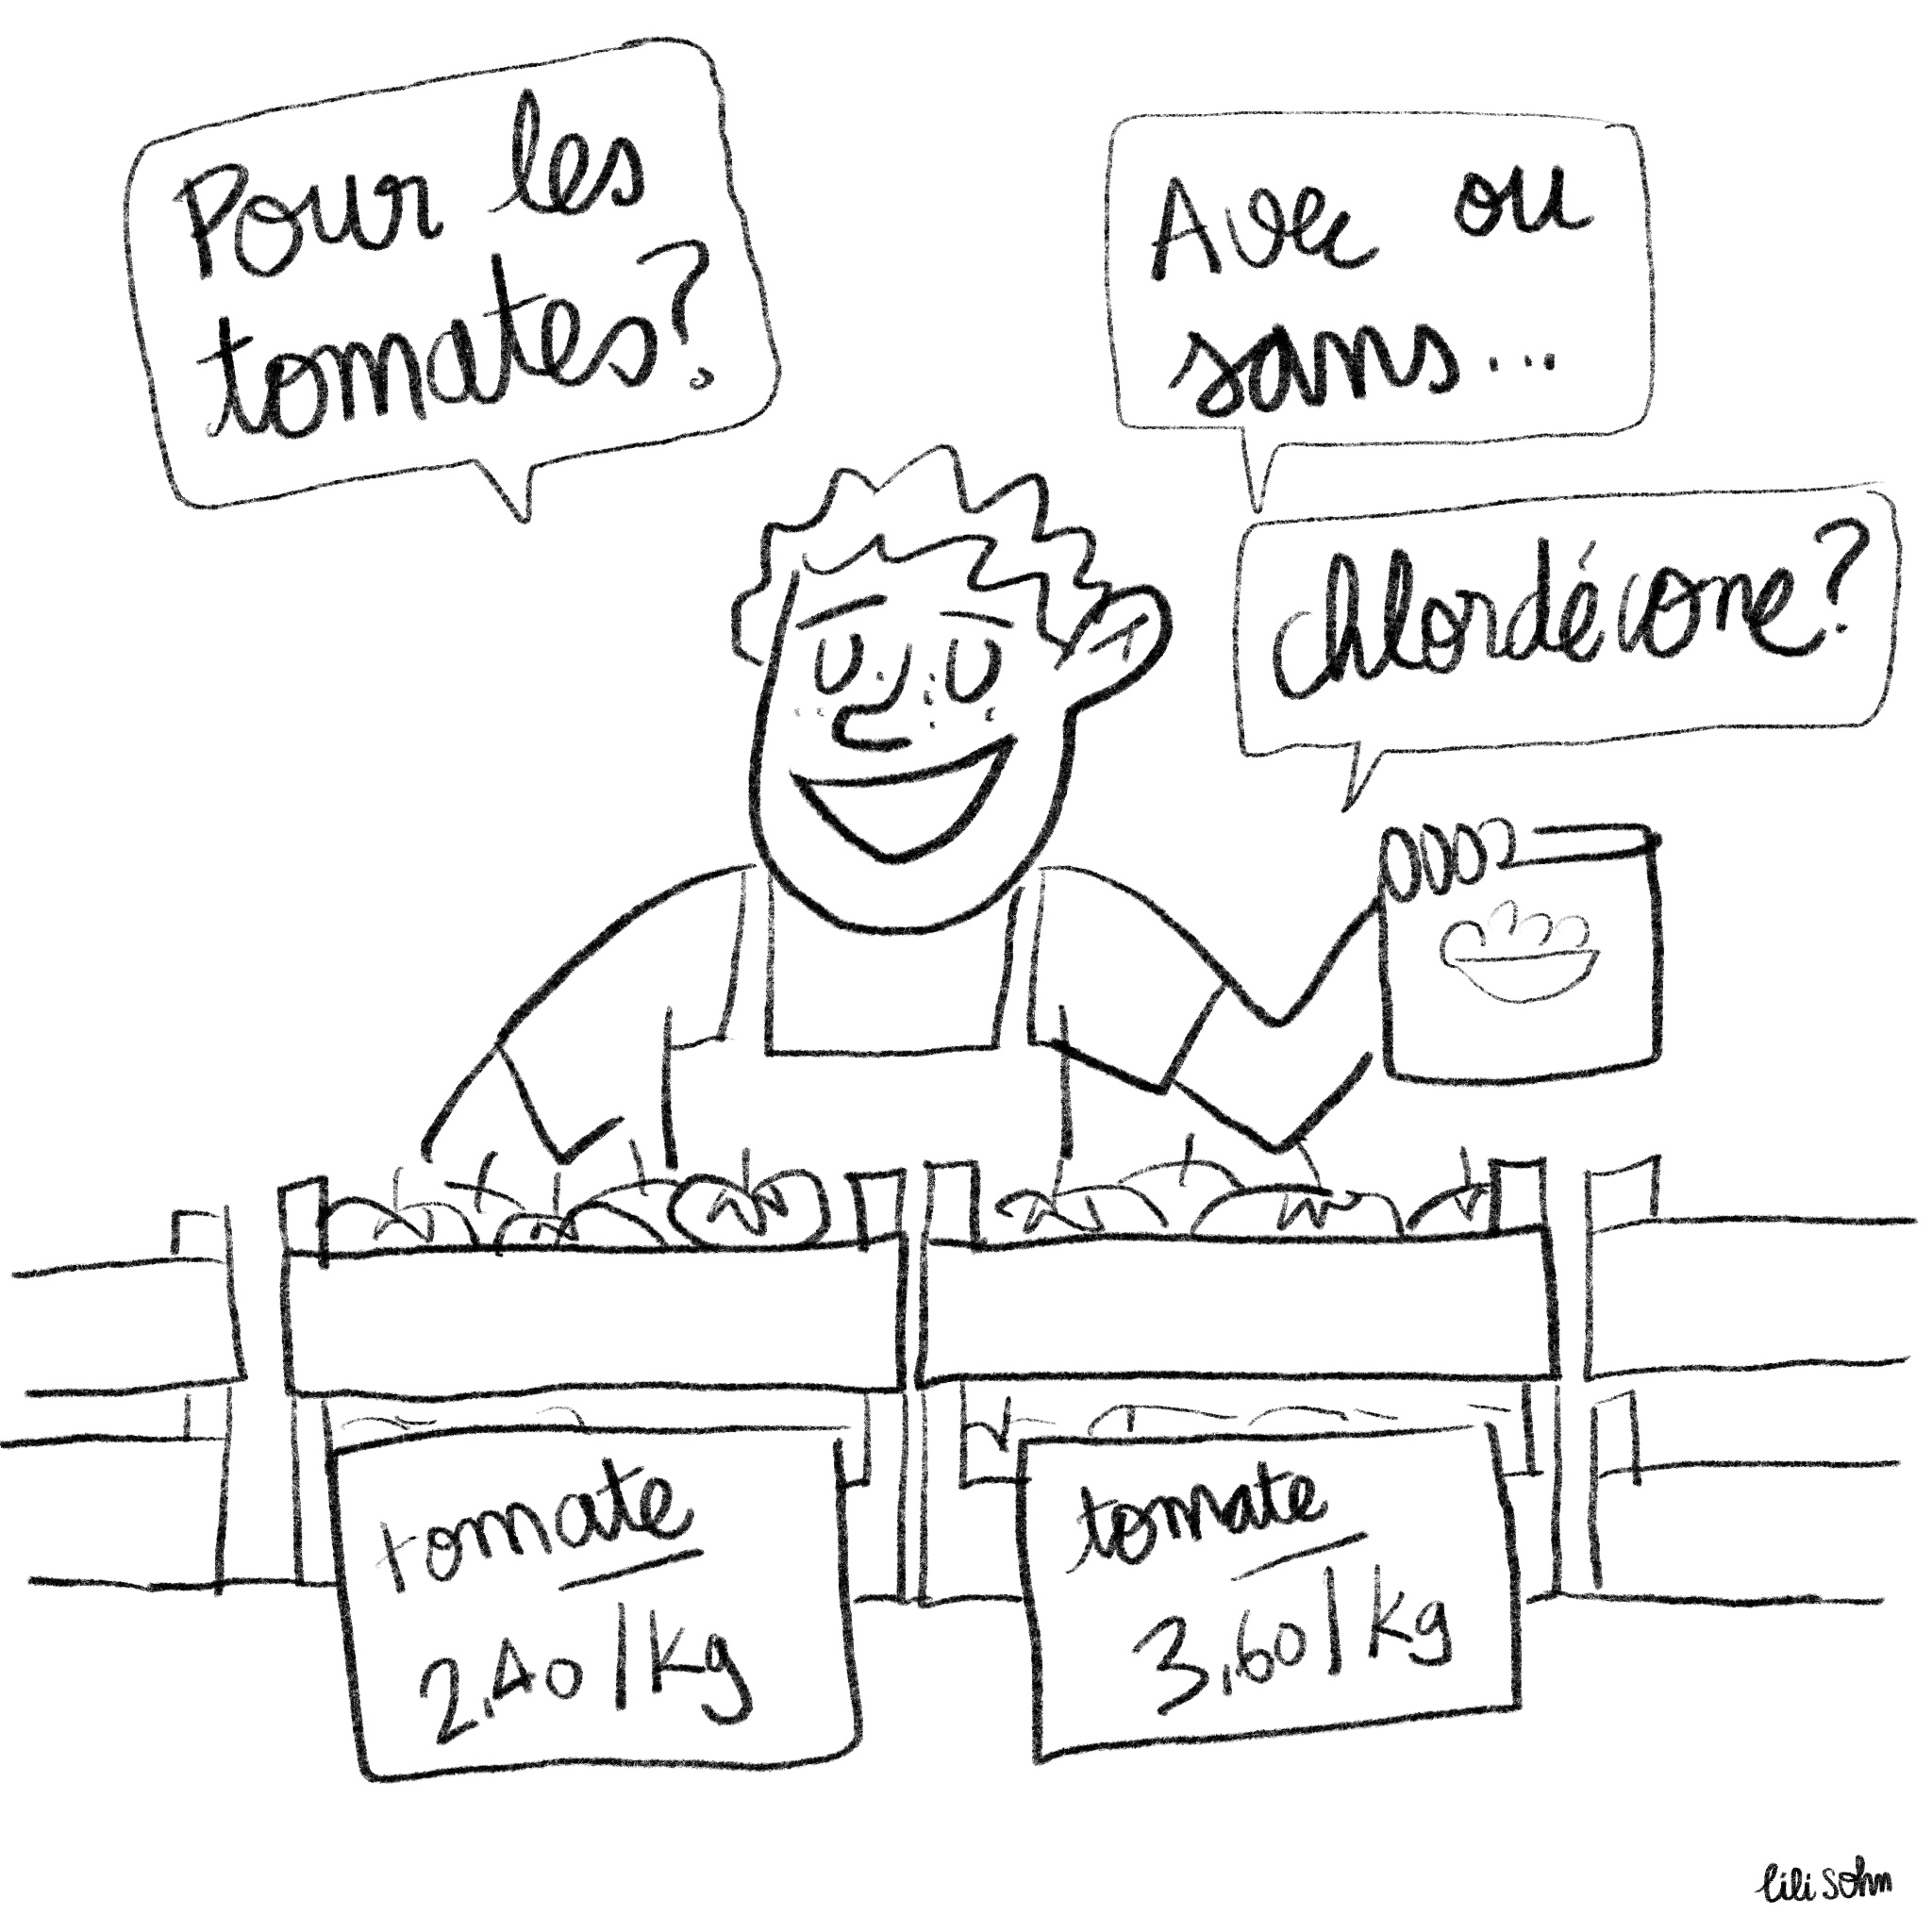 Pour les
tomates?
Avec ou
sans...
chlordécone?
tomate
2,40/kg
tomate
3,60/kg
lili sohn